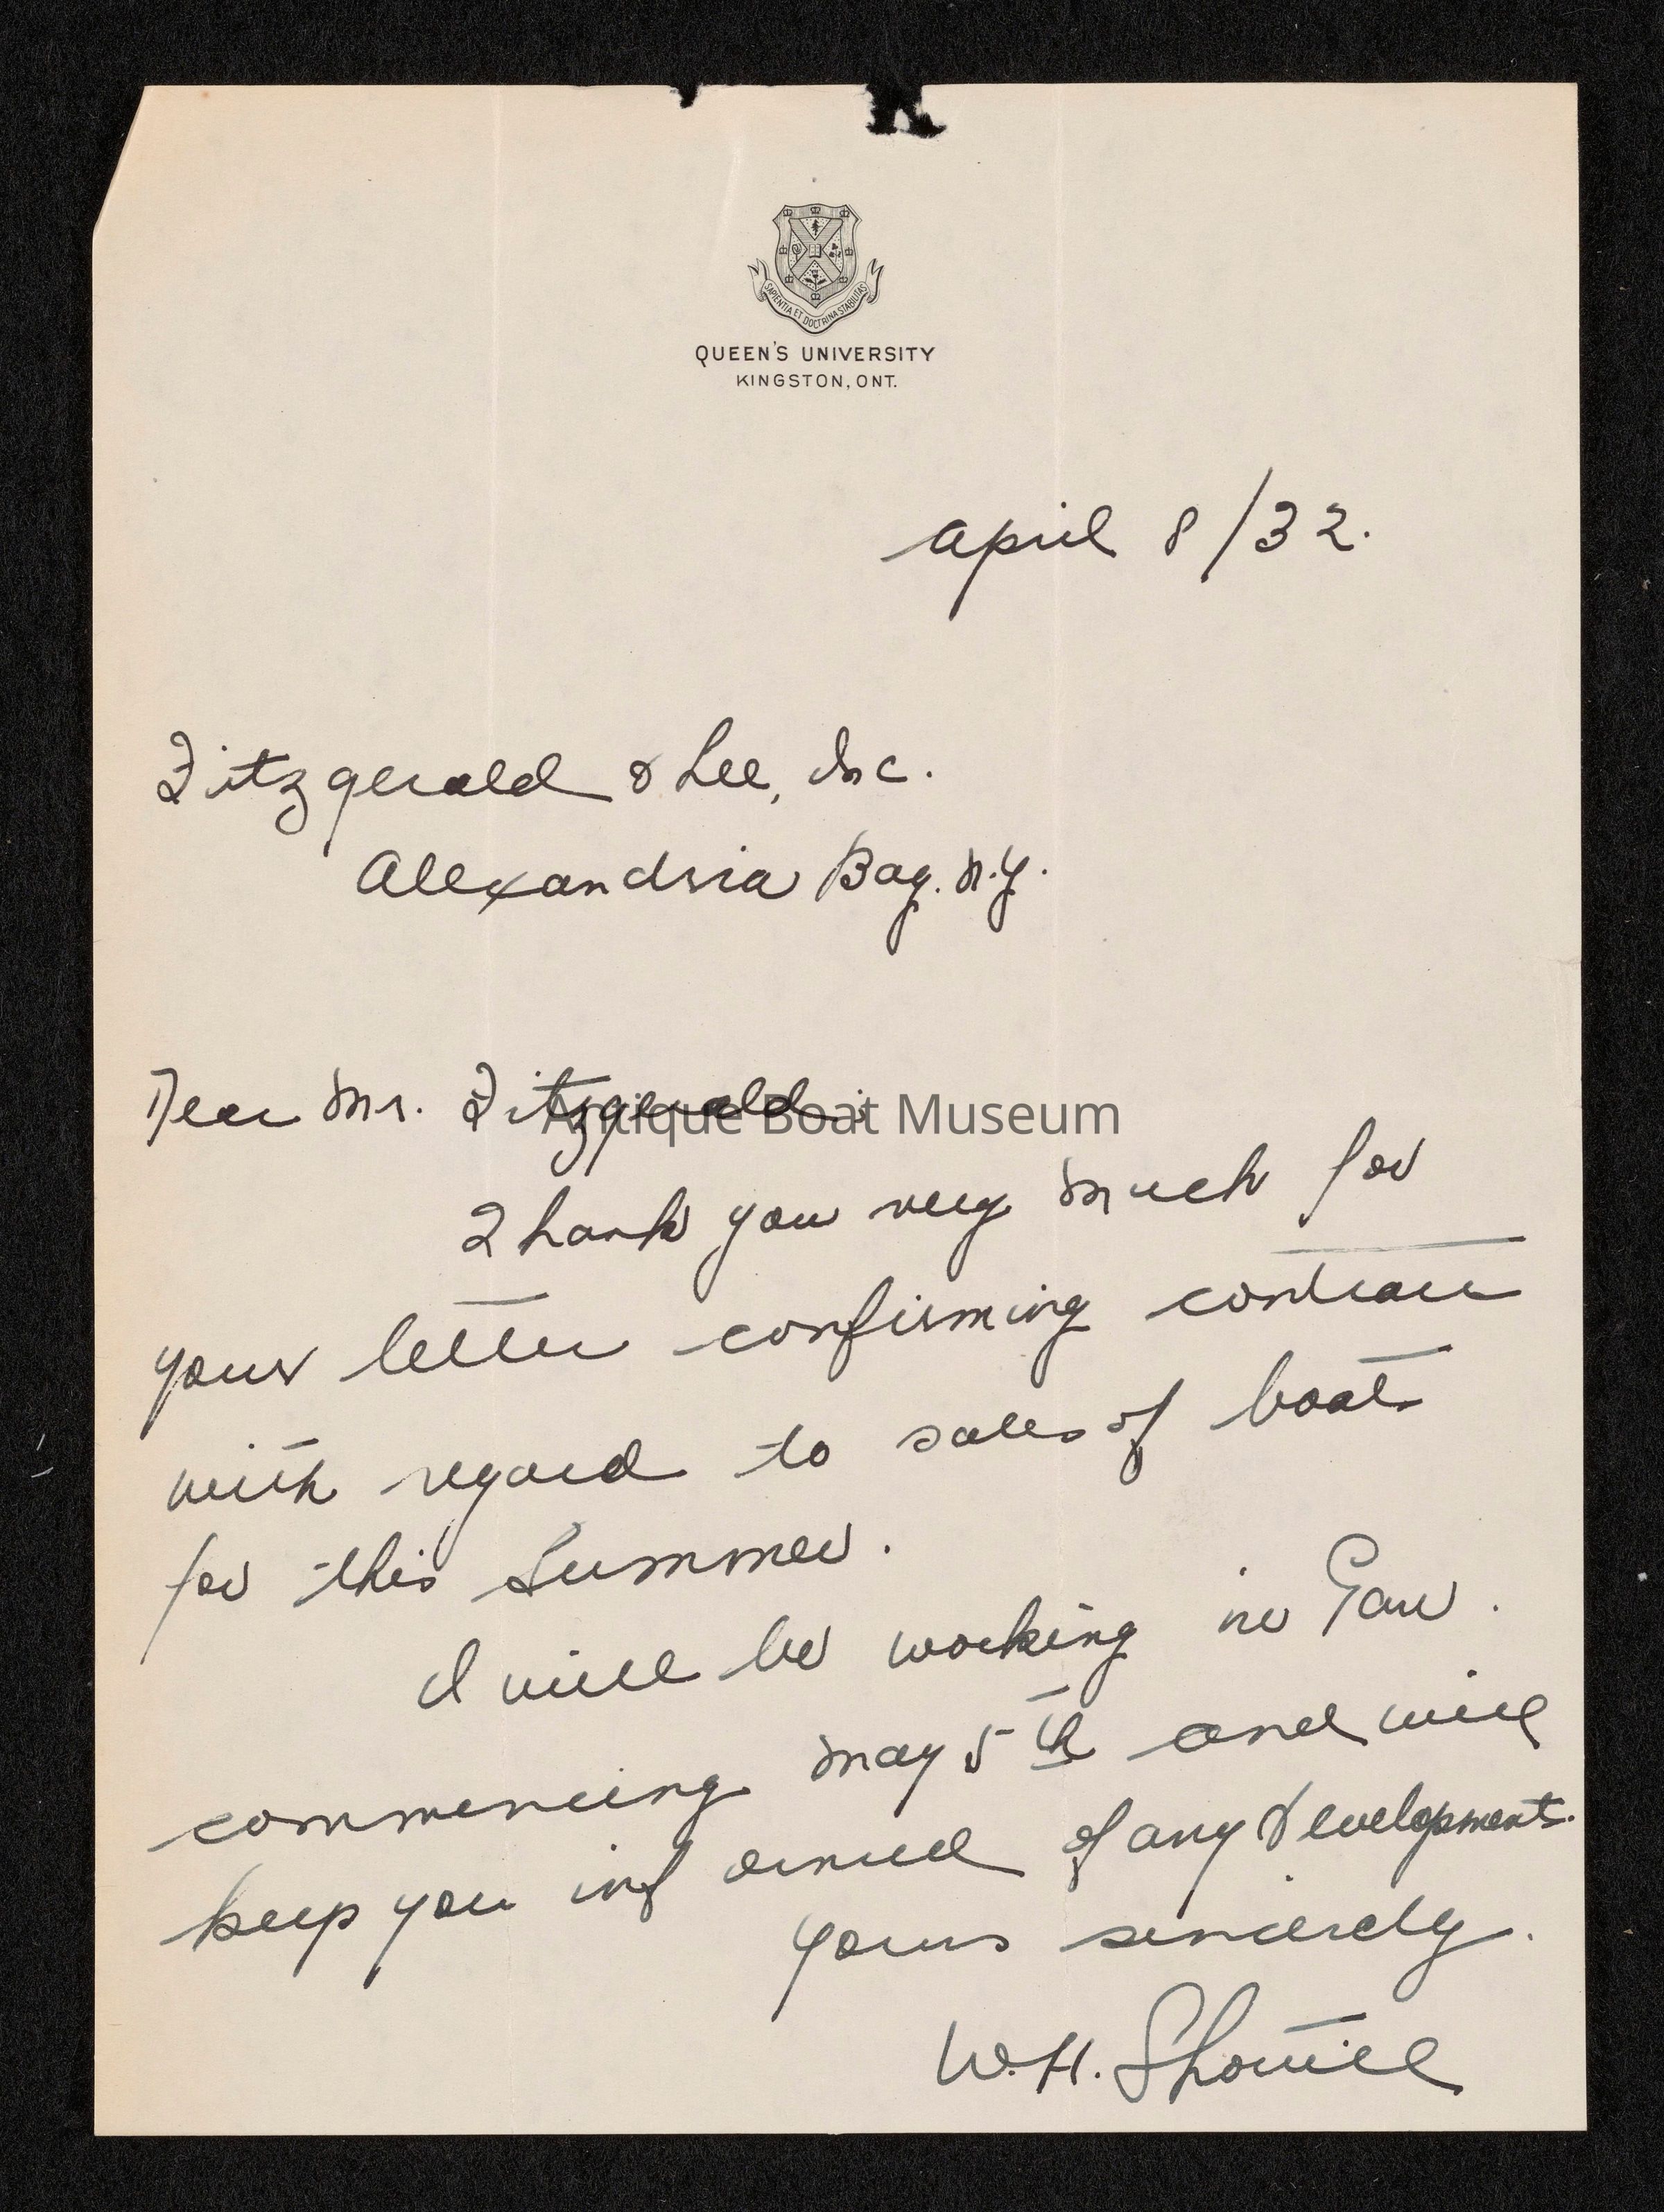 SAPIENTIA ET DOCTRINA STABILITAS
QUEEN'S UNIVERSITY
KINGSTON, ONT.
April 8/32.
Fitzgerald & Lee, Inc.
Alexandria Bay. N.Y.
Dear Mr. Fitzgerald:
Antique Boat Museum
Thank you very much for
your letter confirming contract
with regard to sales of boats
for this Summer.
I will be working in Gan.
commencing May 5th and will
keep you informed of any developments.
Yours sincerely.
W.H.